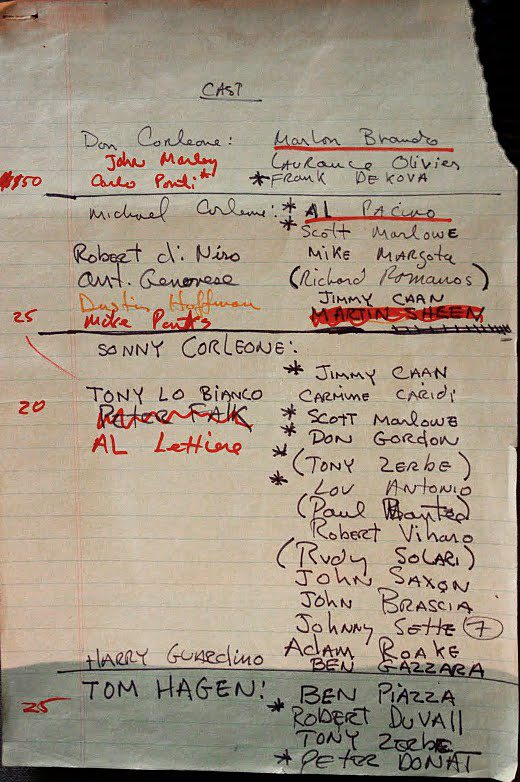 CAST
Don Corleone: Marlon Brando
John Marley Laurance Olivier
Carlo Ponti * *FRANK DE KOVA
Michael Corleone: * AL PACINO
* Scott Marlowe
Robert di Niro MIKE MARGOTA
Ant. Genovese (Richard Romanos)
Dustin Hoffman JIMMY CAAN
25 Mike Parks MARTIN SHEEN
SONNY CORLEONE:
* JIMMY CAAN
TONY LO BIANCO CARMINE CARIDI
20 Peter FALK * SCOTT MARLOWE
AL Lettiere * DON GORDON
* (TONY ZERBE)
* LOU ANTONIO
(Paul)
Robert Viharo
(RUDY SOLARI)
JOHN SAXON
JOHN BRASCIA
Johnny Sette 7
Adam ROAKE
HARRY GUARDINO BEN GAZZARA
TOM HAGEN: BEN PIAZZA
25 * ROBERT DUVALL
TONY ZERBE
* PETER DONAT